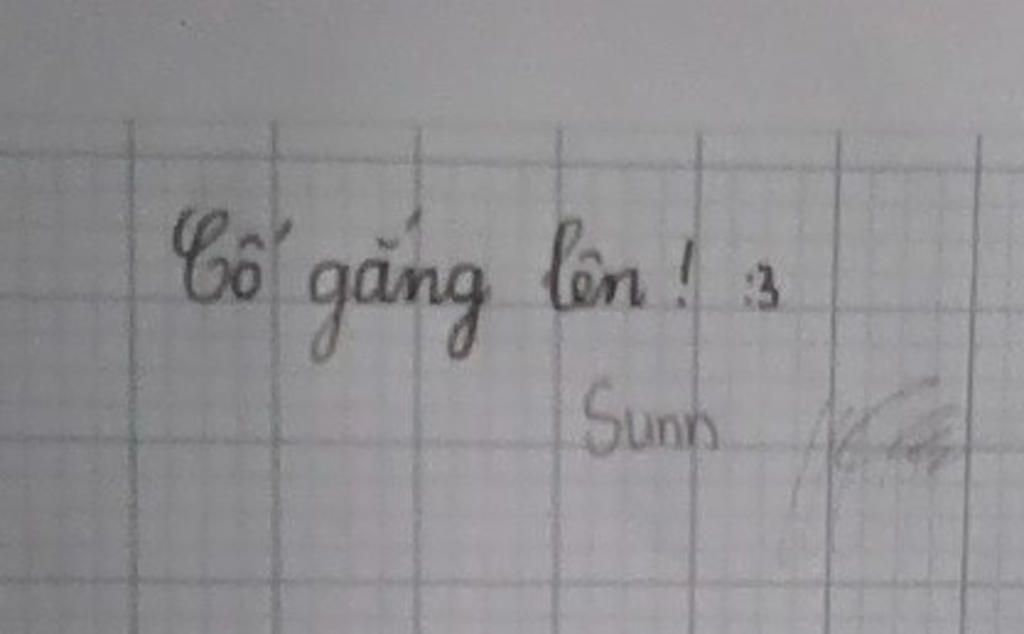 Cố gắng lên! :3
Sunn